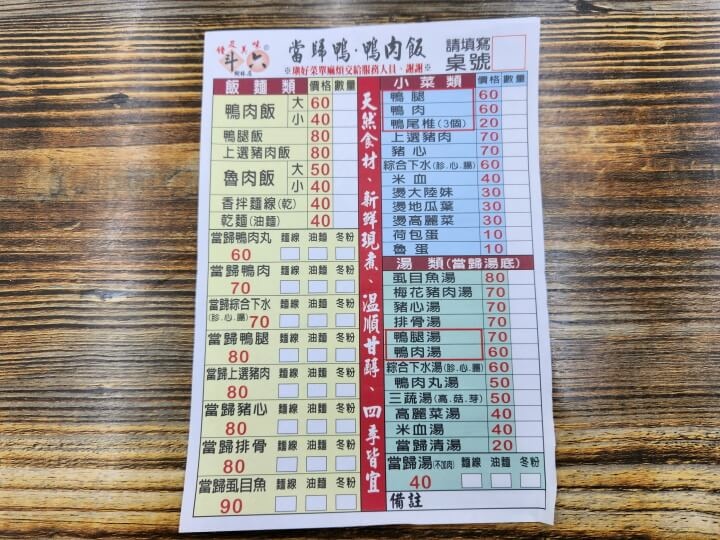 佳足美味
斗六
樹林店
當歸鴨·鴨肉飯
請填寫
桌號
※填好菜單麻煩交給服務人員、謝謝※
飯麵類 價格 數量
鴨肉飯 大 60
小 40
鴨腿飯 80
上選豬肉飯 80
魯肉飯 大 50
小 40
香拌麵線(乾) 40
乾麵(油麵) 40
當歸鴨肉丸 麵線 油麵 冬粉
60
當歸鴨肉 麵線 油麵 冬粉
70
當歸綜合下水 麵線 油麵 冬粉
(胗.心.腸) 70
當歸鴨腿 麵線 油麵 冬粉
80
當歸上選豬肉 麵線 油麵 冬粉
80
當歸豬心 麵線 油麵 冬粉
80
當歸排骨 麵線 油麵 冬粉
80
當歸虱目魚 麵線 油麵 冬粉
90
天然食材、新鮮現煮、溫順甘醇、四季皆宜
小菜類 價格 數量
鴨腿 60
鴨肉 60
鴨尾椎(3個) 20
上選豬肉 70
豬心 70
綜合下水(胗.心.腸) 60
米血 40
燙大陸妹 30
燙地瓜葉 30
燙高麗菜 30
荷包蛋 10
魯蛋 10
湯類(當歸湯底)
虱目魚湯 80
梅花豬肉湯 70
豬心湯 70
排骨湯 70
鴨腿湯 70
鴨肉湯 60
綜合下水湯(胗.心.腸) 60
鴨肉丸湯 50
三蔬湯(高.菇.芽) 50
高麗菜湯 40
米血湯 40
當歸清湯 20
當歸湯(不加肉) 麵線 油麵 冬粉
40
備註